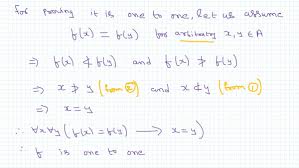 for proving it is one to one, let us assume
f(x) = f(y) for arbitrary x, y ∈ A
⇒ f(x) ≮ f(y) and f(x) ≯ f(y)
⇒ x ≯ y (from ②) and x ≮ y (from ①)
⇒ x = y
∴ ∀x∀y(f(x) = f(y) ⟶ x = y)
∴ f is one to one